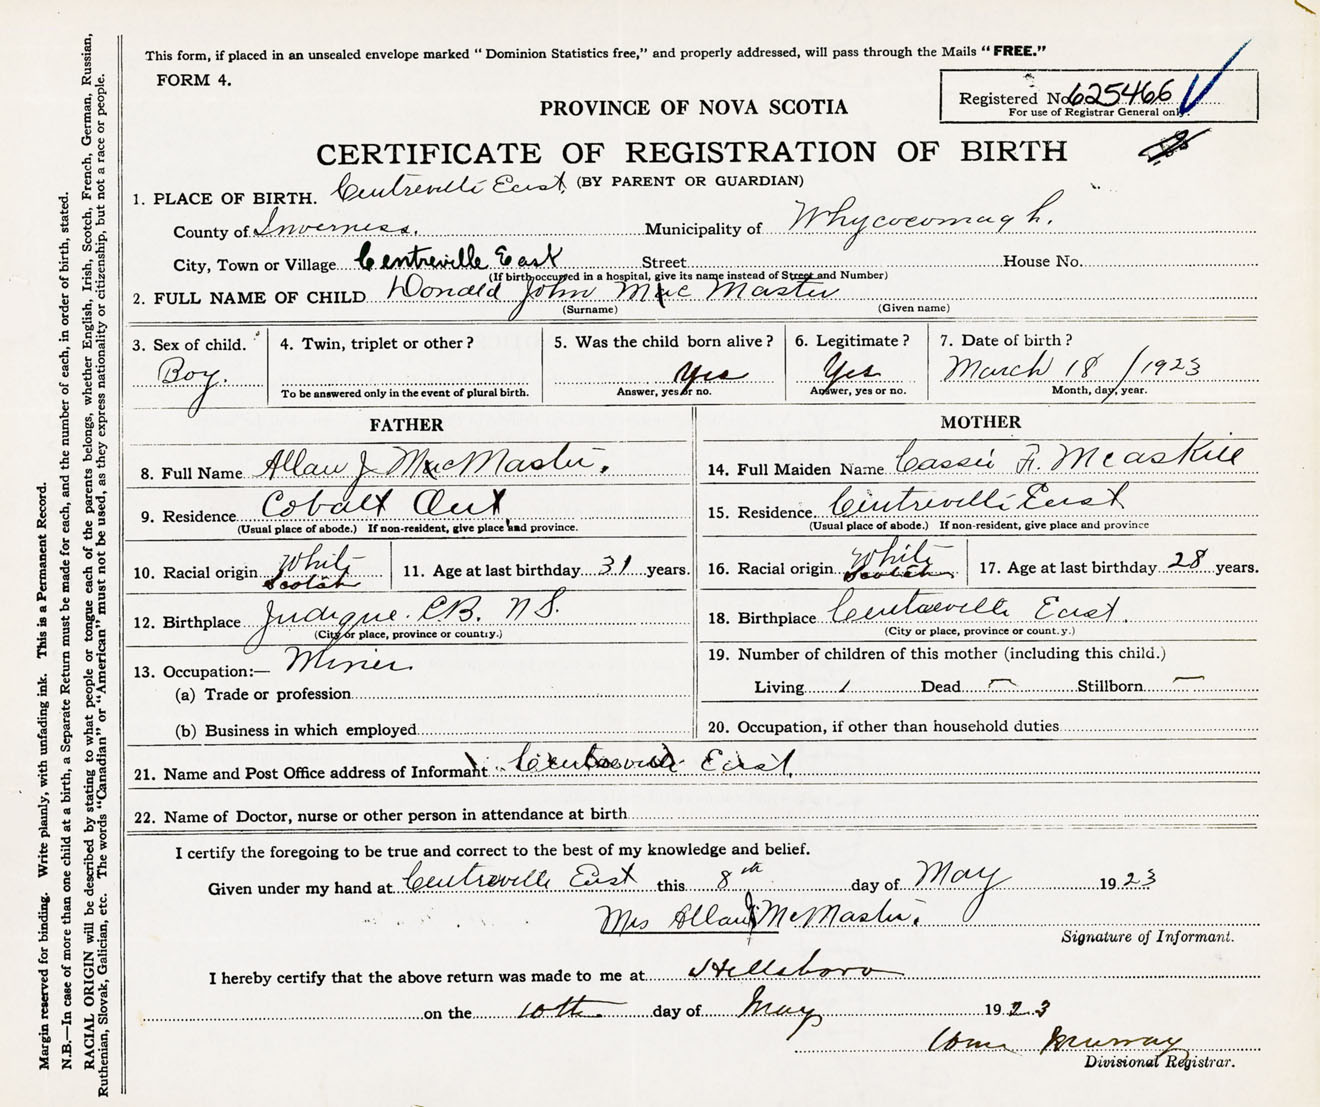 This form, if placed in an unsealed envelope marked "Dominion Statistics free," and properly addressed, will pass through the Mails "FREE."
FORM 4.
Registered No. 625466
For use of Registrar General only.
PROVINCE OF NOVA SCOTIA
CERTIFICATE OF REGISTRATION OF BIRTH
(BY PARENT OR GUARDIAN)
1. PLACE OF BIRTH. Centreville East
County of Inverness. Municipality of Whycocomagh.
City, Town or Village Centreville East Street House No.
(If birth occurred in a hospital, give its name instead of Street and Number)
2. FULL NAME OF CHILD Donald John MacMaster
(Surname) (Given name)
3. Sex of child. 4. Twin, triplet or other? 5. Was the child born alive? 6. Legitimate? 7. Date of birth?
Boy. Yes Yes March 18/1923
To be answered only in the event of plural birth. Answer, yes or no. Answer, yes or no. Month, day, year.
FATHER
8. Full Name Allan J MacMaster.
9. Residence Cobalt Ont
(Usual place of abode.) If non-resident, give place and province.
10. Racial origin White Scotch 11. Age at last birthday 31 years.
12. Birthplace Judique. C.B. N S.
(City or place, province or county.)
13. Occupation:— Miner
(a) Trade or profession
(b) Business in which employed
MOTHER
14. Full Maiden Name Cassie F. McaSkill
15. Residence Centreville East
(Usual place of abode.) If non-resident, give place and province
16. Racial origin White Scotch 17. Age at last birthday 28 years.
18. Birthplace Centreville East.
(City or place, province or county.)
19. Number of children of this mother (including this child.)
Living 1 Dead — Stillborn —
20. Occupation, if other than household duties
21. Name and Post Office address of Informant Centreville East.
22. Name of Doctor, nurse or other person in attendance at birth
I certify the foregoing to be true and correct to the best of my knowledge and belief.
Given under my hand at Centreville East this 8th day of May 1923
Mrs Allan J McMaster.
Signature of Informant.
I hereby certify that the above return was made to me at Hillsboro
on the 10th day of May 1923
Murray
Divisional Registrar.
Margin reserved for binding. Write plainly, with unfading ink. This is a Permanent Record.
N.B.—In case of more than one child at a birth, a Separate Return must be made for each, and the number of each, in order of birth, stated.
RACIAL ORIGIN will be described by stating to what people or tongue each of the parents belongs, whether English, Irish, Scotch, French, German, Russian,
Ruthenian, Slovak, Galician, etc. The words "Canadian" or "American" must not be used, as they express nationality or citizenship, but not a race or people.